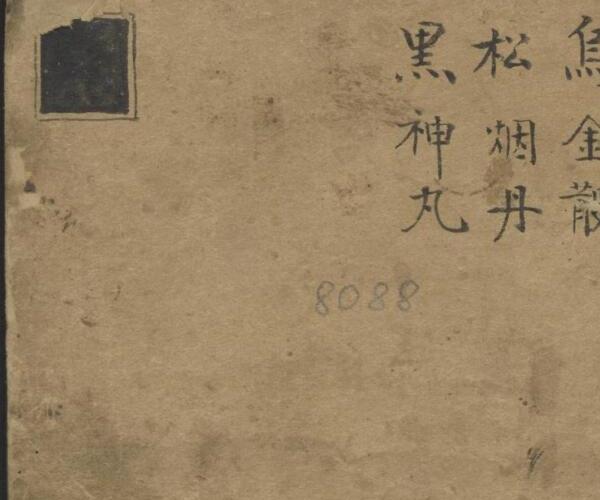 烏金散
松烟丹
黑神丸
8088